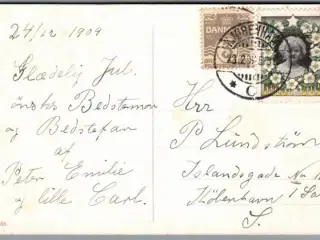 24/12 1909
Glædelig Jul.
ønskes Bedstemor
og Bedstefar
af
Peter Emilie
og lille Carl.
DANMARK
KØBENHAVN
C
Hr
P Lundstrøm
Islandsgade No
København
S.